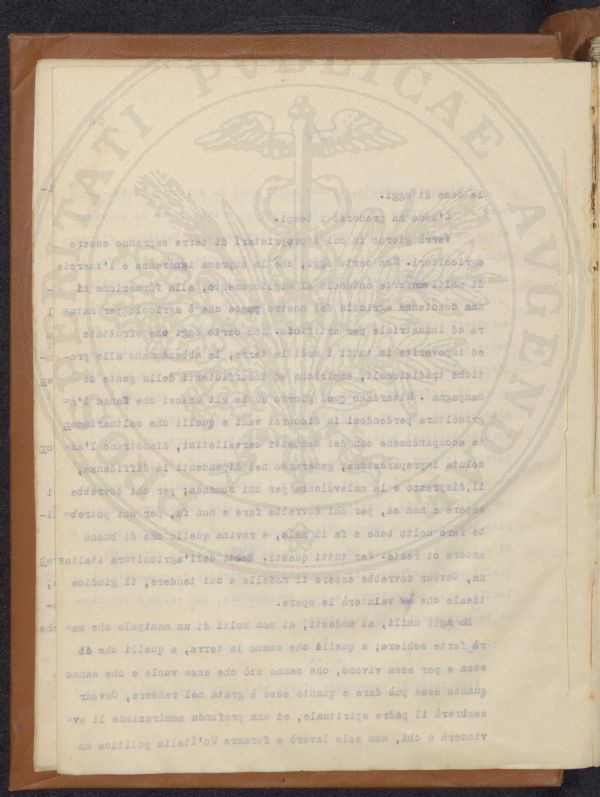 PROSPERITATI PUBLICAE AVGENDAE
le cose di oggi.
L'uomo ha precorso i tempi.
Verrà giorno in cui i proprietari di terre sapranno essere
agricoltori. Non certo oggi, che la suprema ignoranza e l'inerzia
di molti forte ostacolo al miglioramento, alla formazione di
una coscienza agricola del nostro paese che è agricolo per natu=
ra ed industriale per artificio. Non certo oggi che sfruttate
ed impoverite in tutti i modi le terre, le abbandonano alle pra=
tiche tradizionali, empiriche ed insufficienti della gente di
campagna. Ritardano quel giorno anche gli oziosi che fanno l'a=
gricoltura perdendosi in discorsi vani e quelli che saltuariamen
te occupandosene con dei concetti cervellotici, dimostrano l'as=
soluta impreparazione, generando nei dipendenti la diffidenza,
il disprezzo e la malevolenza per chi comanda; per chi dovrebbe
sapere e non sa, per chi dovrebbe fare e non fa, per chi potreb=
be fare molto bene e fa il male, e rovina quello che di buono
ancora ci resta. Per tutti questi. Beoti dell'agricoltura italia=
na, Cavour dovrebbe essere il modello a cui tendere, il giudice
ideale che ne valuterà le opere.
Ma agli umili, ai modesti, ai non molti di un manipolo che sa=
rà forte schiera; a quelli che amano la terra, a quelli che di
essa e per essa vivono, che sanno ciò che essa vuole e che sanno
quanto essa può dare e quanto essa è grata nel rendere, Cavour
sembrerà il padre spirituale, ed una profonda ammirazione li av=
vincerà a chi, non solo lavorò a formare Un'Italia politica ma